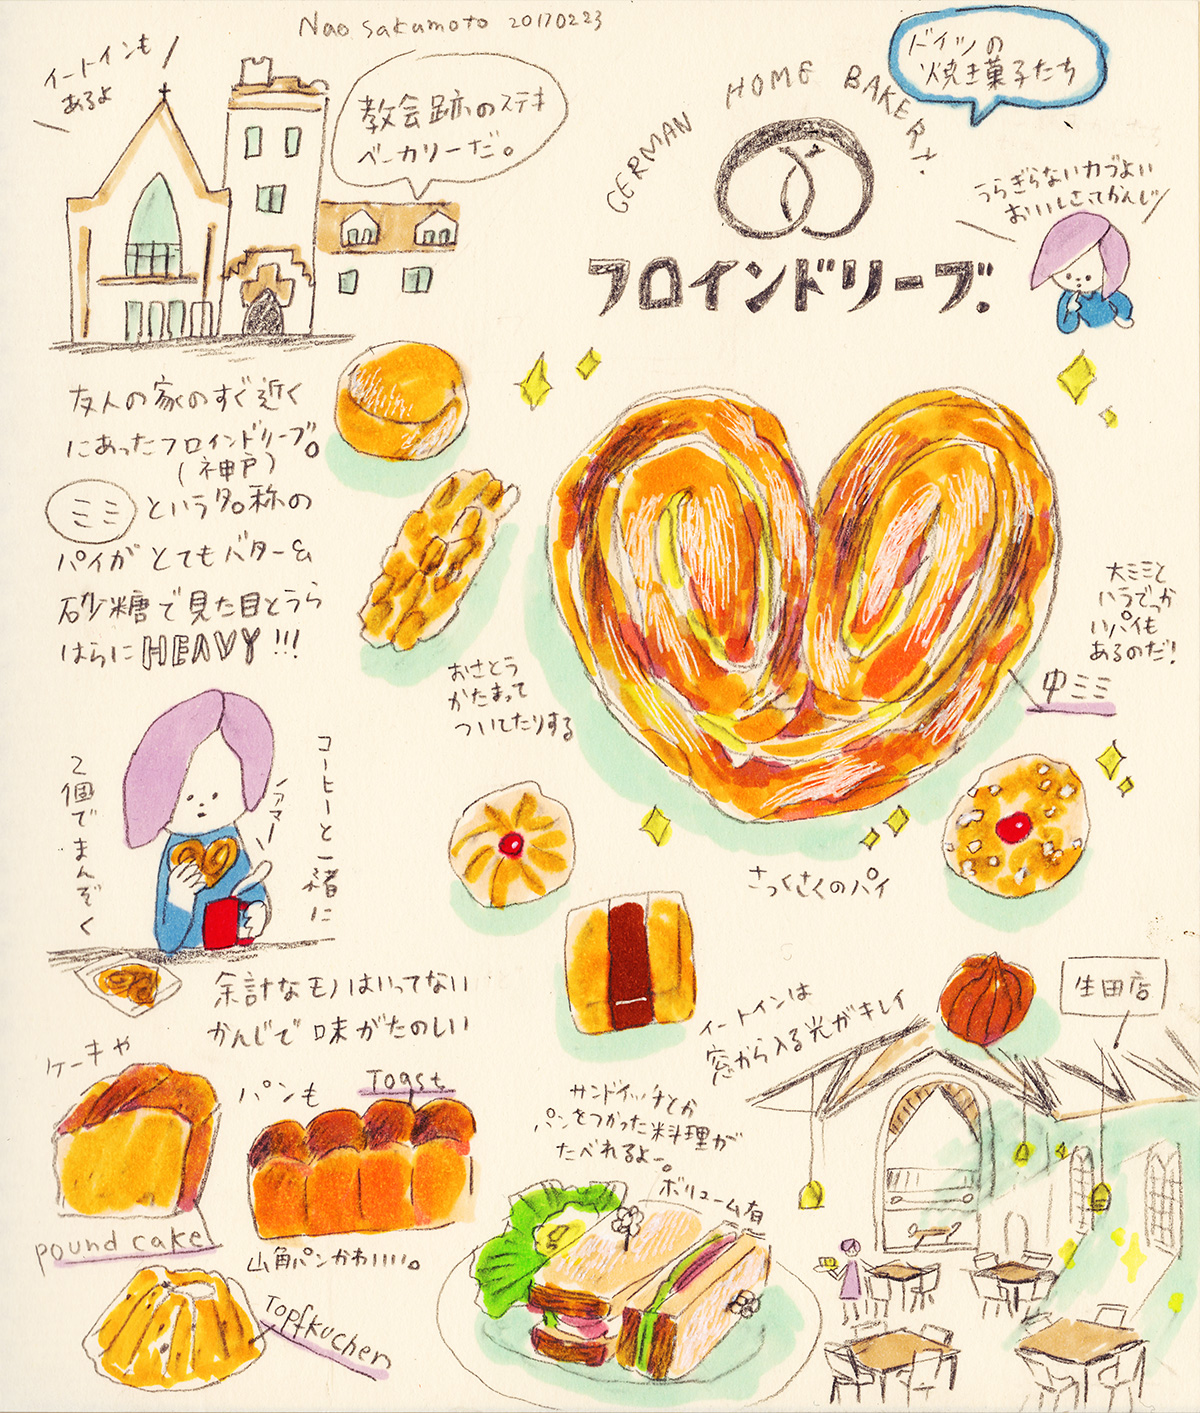 Nao Sakamoto 20170223
イートインも
あるよ
教会跡のステキ
ベーカリーだ。
GERMAN HOME BAKERY.
フロインドリーブ.
ドイツの
焼き菓子たち
うらぎらない力づよい
おいしさってかんじ
友人の家のすぐ近く
にあったフロインドリーブ。
(神戸)
ミミという名称の
パイがとてもバター&
砂糖で見た目とうら
はらにHEAVY!!!
おさとう
かたまって
ついてたりする
大ミミと
いうでっか
いパイも
あるのだ!
中ミミ
さっくさくのパイ
コーヒーと一緒に
2個でまんぞく
余計なモノはいってない
かんじで味がたのしい
ケーキや
pound cake
パンも
Toast
山角パンかわいい。
Topfkuchen
サンドイッチとか
パンをつかった料理が
たべれるよー。
ボリューム有
イートインは
窓から入る光がキレイ
生田店